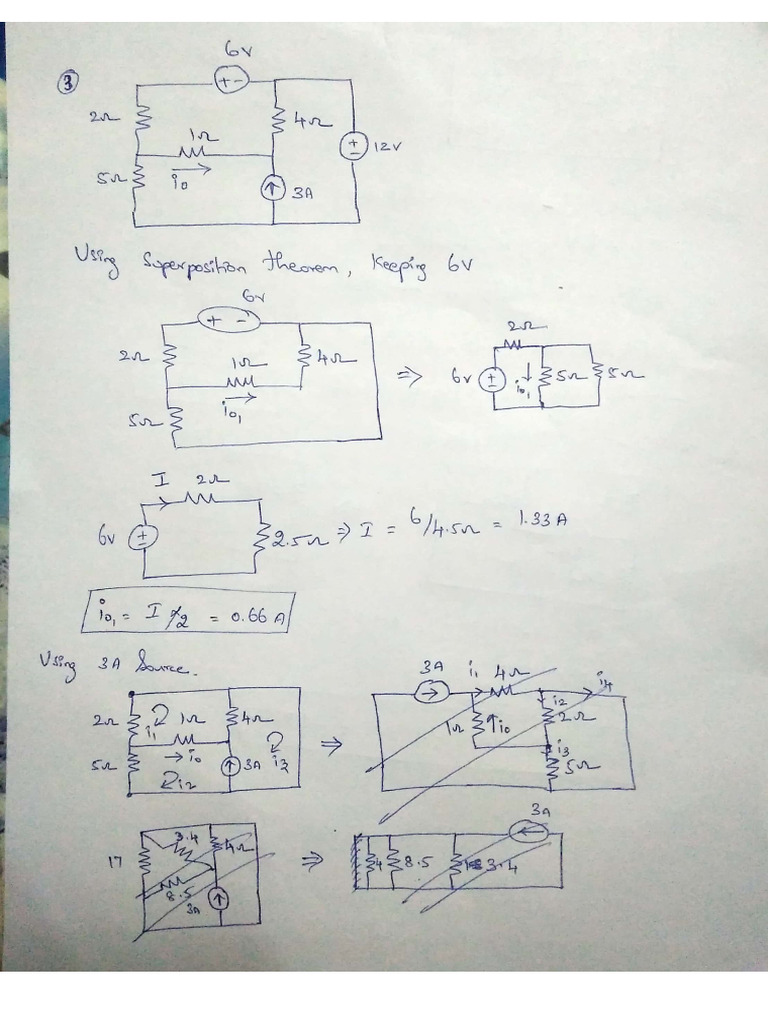 6V
③
2Ω
1Ω
4Ω
+ -
+ -
12V
5Ω
i0
3A
Using Superposition theorem, Keeping 6V
6V
+ -
2Ω
1Ω
4Ω
i01
5Ω
⇒
2Ω
6V
+ -
i01
5Ω
5Ω
I 2Ω
6V
+ -
2.5Ω ⇒ I = 6/4.5Ω = 1.33A
i01 = I/2 = 0.66A
Using 3A Source.
2Ω
i1
1Ω
4Ω
→ i0
5Ω
3A
i3
i2
⇒
3A
i1
4Ω
i4
1Ω
i0
i2
2Ω
i3
5Ω
17
3.4
4Ω
8.5
3A
⇒
3A
4
8.5
3.4